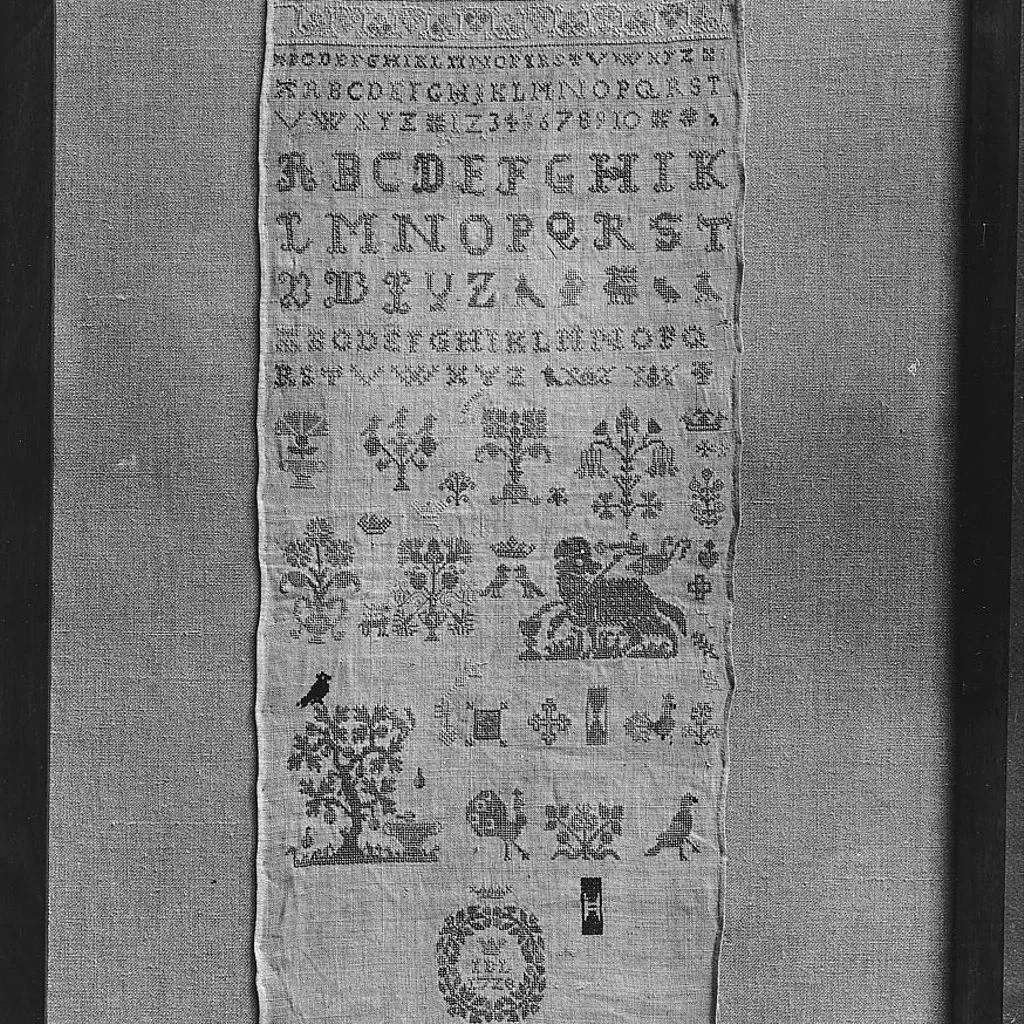 ABCDEFGHIKLMNOPRSTVWXYZ
ABCDEFGHIKLMNOPQRST
VWXYZ 12345678910
ABCDEFGHIK
LMNOPQRST
VWXYZ
ABCDEFGHIKLMNOPQ
RSTVWXYZ